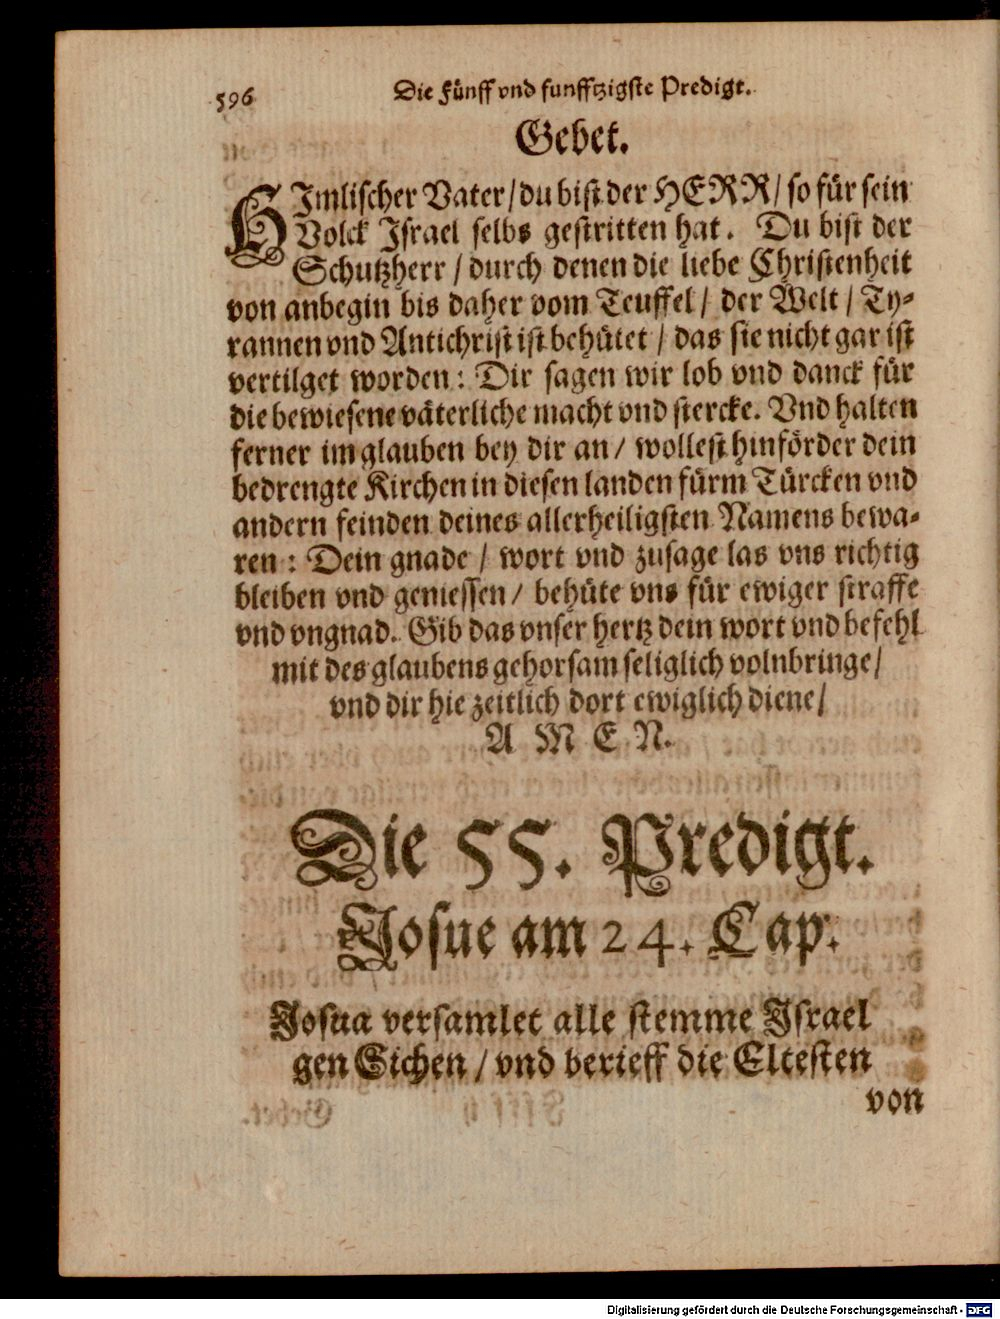 596 Die Fünff vnd funfftzigste Predigt.
Gebet.
HImlischer Vater/ du bist der HERR/ so für sein
Volck Israel selbs gestritten hat. Du bist der
Schutzherr / durch denen die liebe Christenheit
von anbegin bis daher vom Teuffel/ der Welt / Ty-
rannen vnd Antichrist ist behütet / das sie nicht gar ist
vertilget worden: Dir sagen wir lob vnd danck für
die bewiesene väterliche macht vnd stercke. Vnd halten
ferner im glauben bey dir an/ wollest hinförder dein
bedrengte Kirchen in diesen landen fürm Türcken vnd
andern feinden deines allerheiligsten Namens bewa-
ren: Dein gnade / wort vnd zusage las vns richtig
bleiben vnd geniessen/ behüte vns für ewiger straffe
vnd vngnad. Gib das vnser hertz dein wort vnd befehl
mit des glaubens gehorsam seliglich volnbringe/
vnd dir hie zeitlich dort ewiglich diene/
A M E N.
Die 55. Predigt.
Josue am 24. Cap.
Josua versamlet alle stemme Israel
gen Sichen / vnd berieff die Eltesten
von
Digitalisierung gefördert durch die Deutsche Forschungsgemeinschaft - DFG